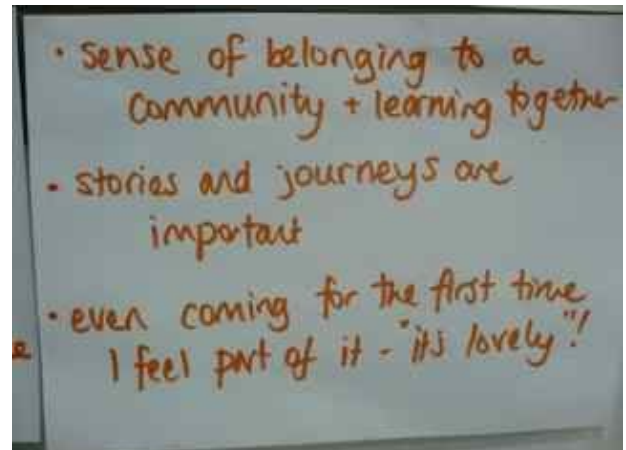 • sense of belonging to a
community + learning together
• stories and journeys are
important
• even coming for the first time
I feel part of it - "it's lovely"!